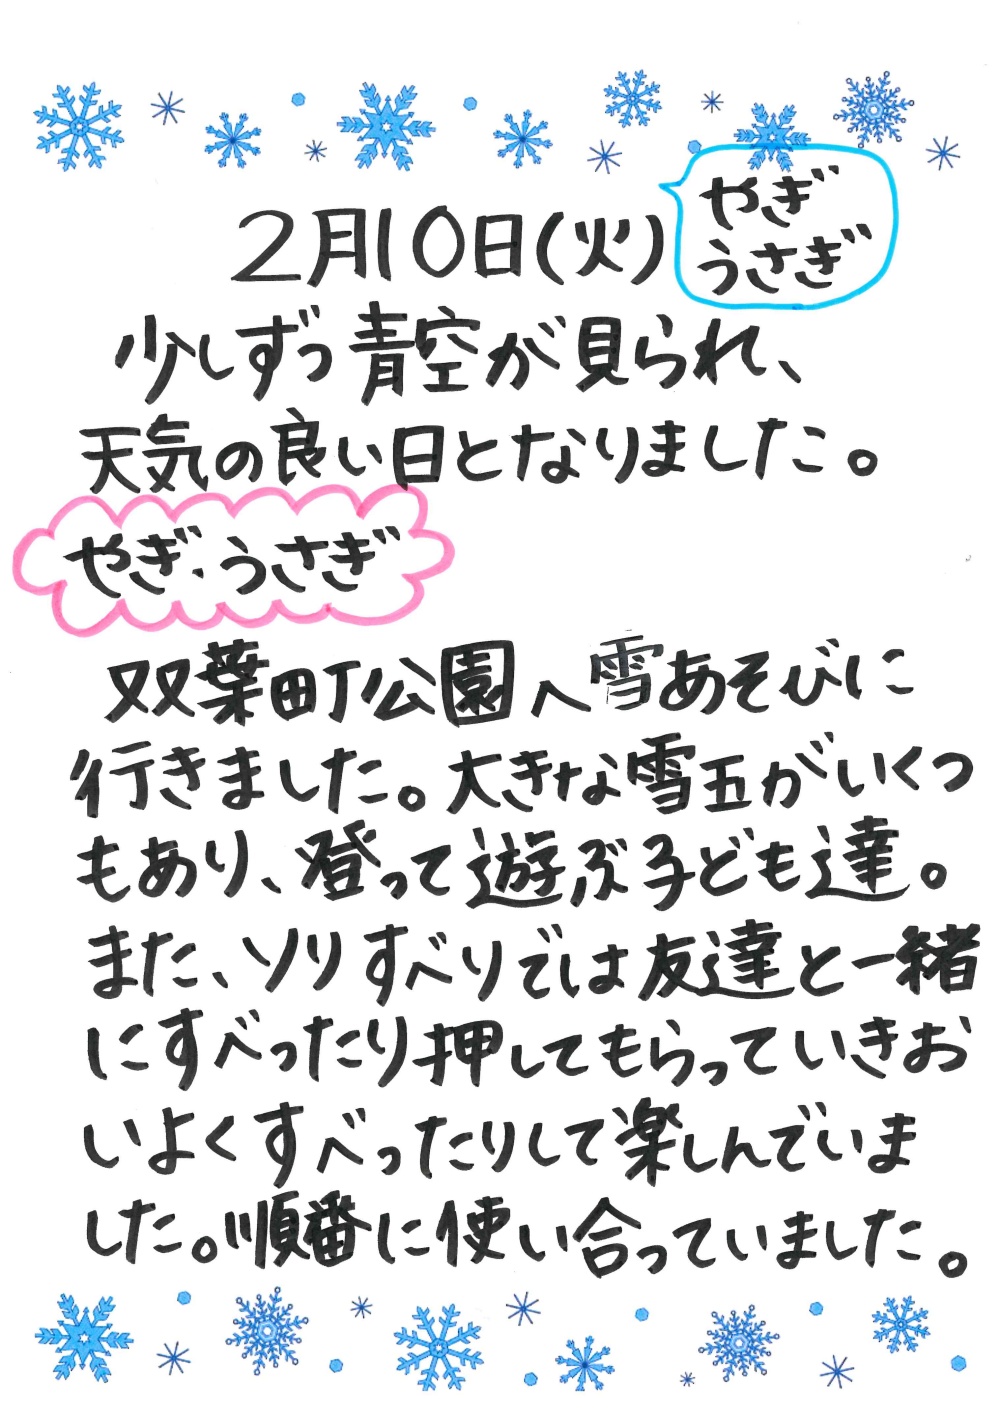 2月10日(火)
やぎ
うさぎ
少しずつ青空が見られ、
天気の良い日となりました。
やぎ・うさぎ
双葉町公園へ雪あそびに
行きました。大きな雪玉がいくつ
もあり、登って遊ぶ子ども達。
また、ソリすべりでは友達と一緒
にすべったり押してもらっていきお
いよくすべったりして楽しんでいま
した。順番に使い合っていました。